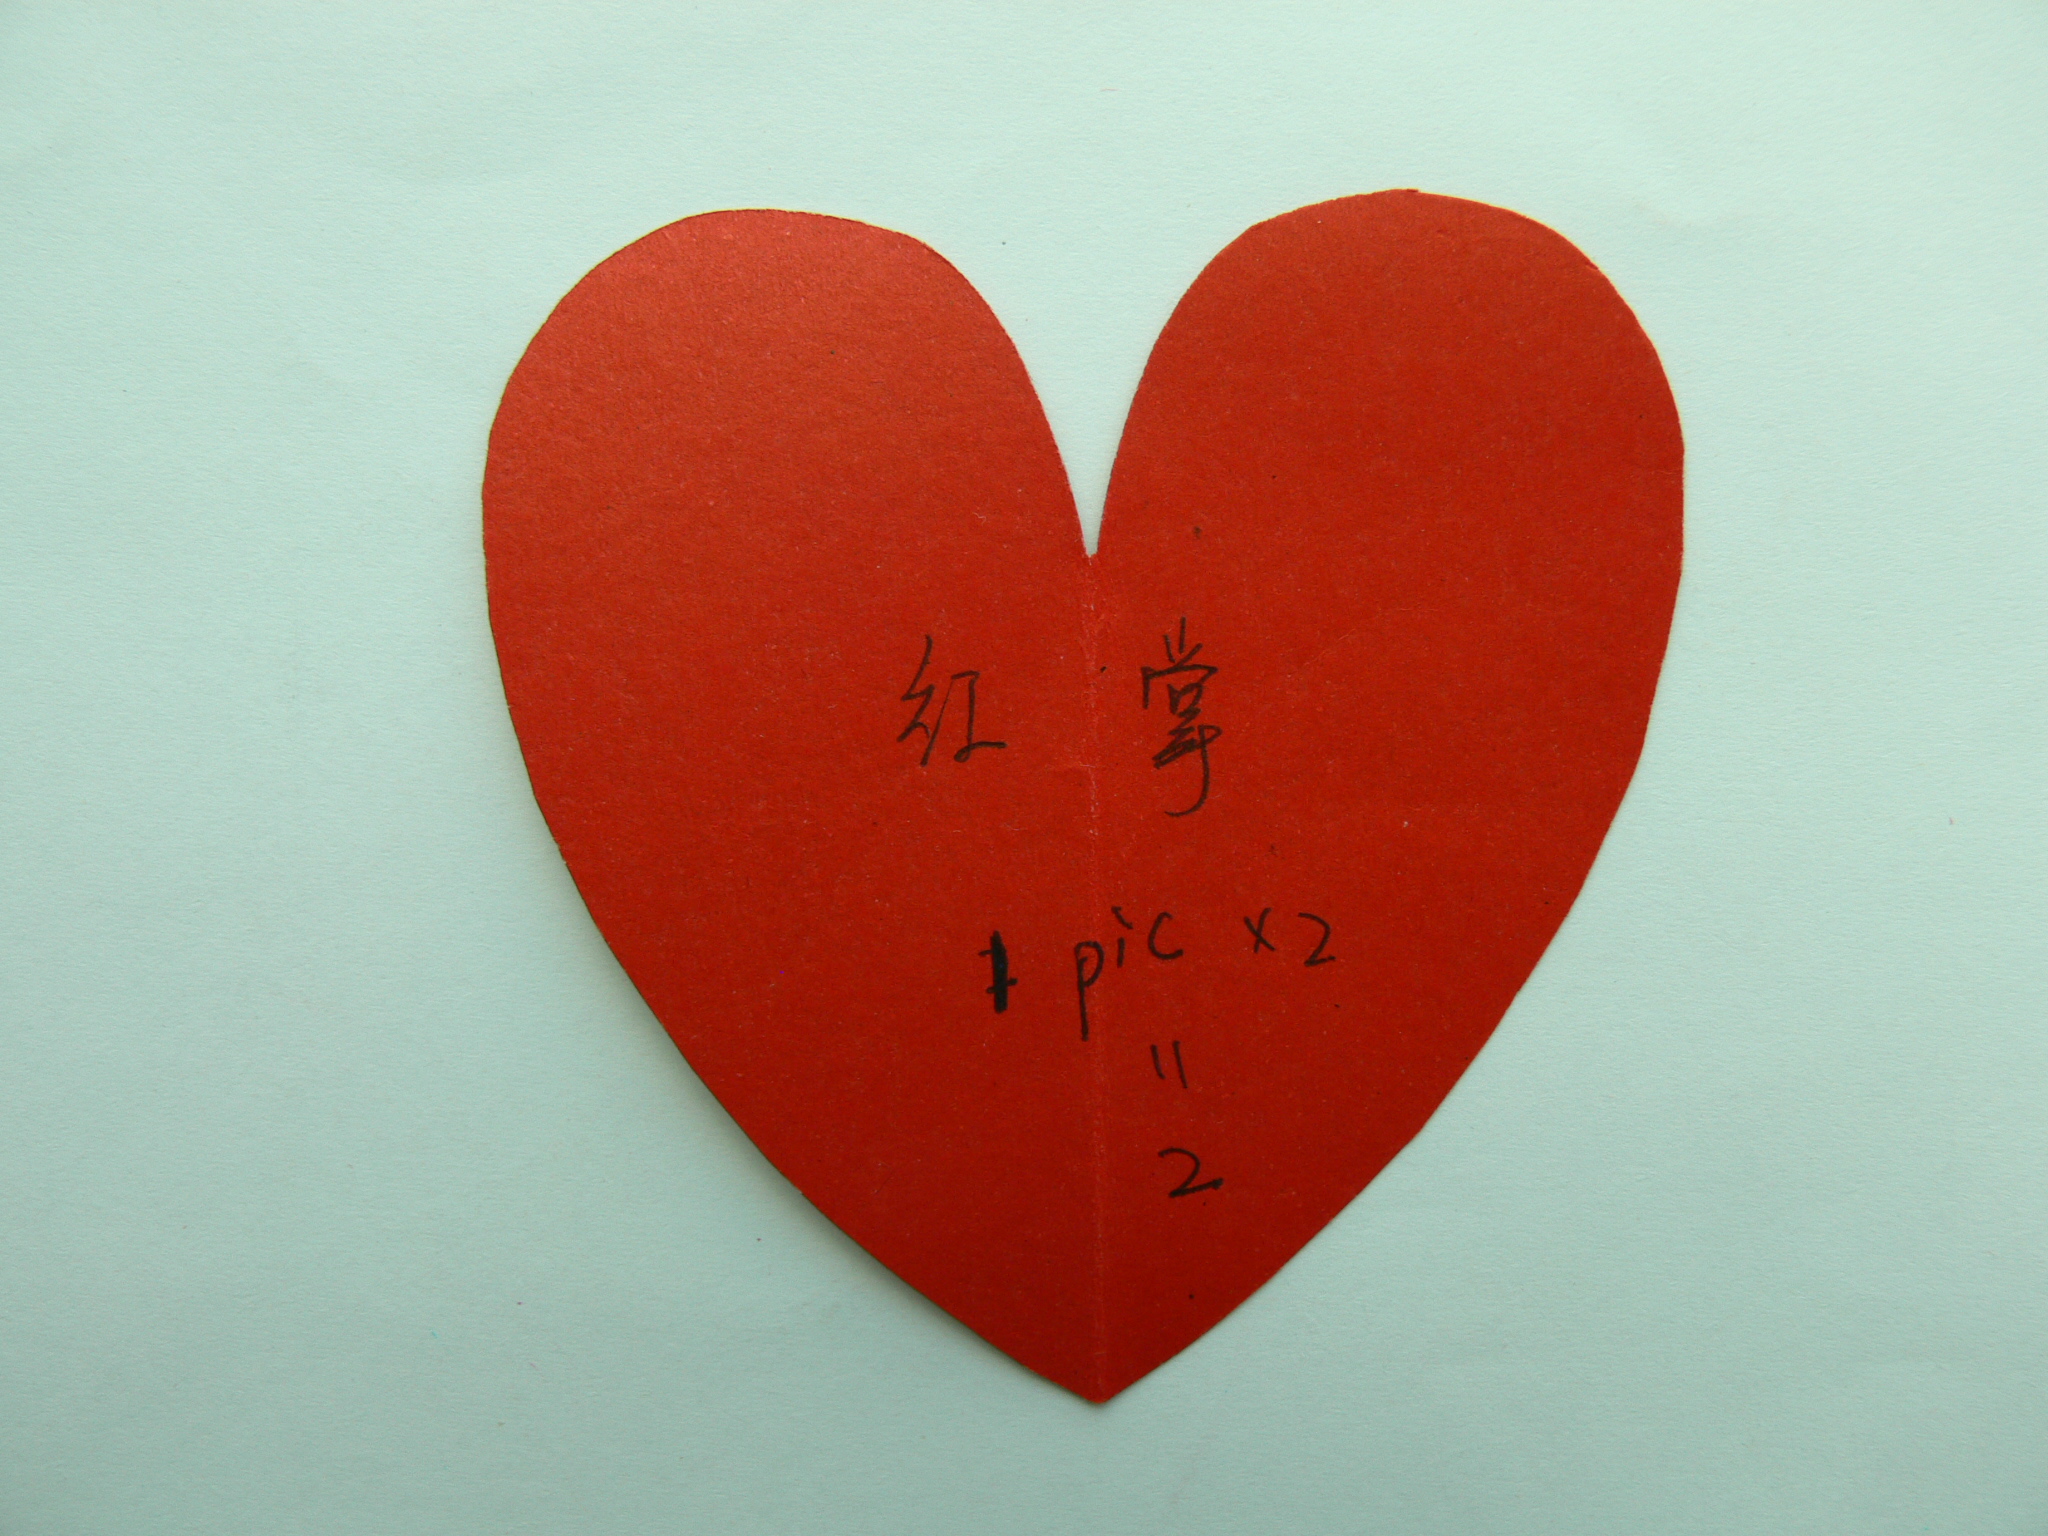 红掌
1 pic ×2
=
2